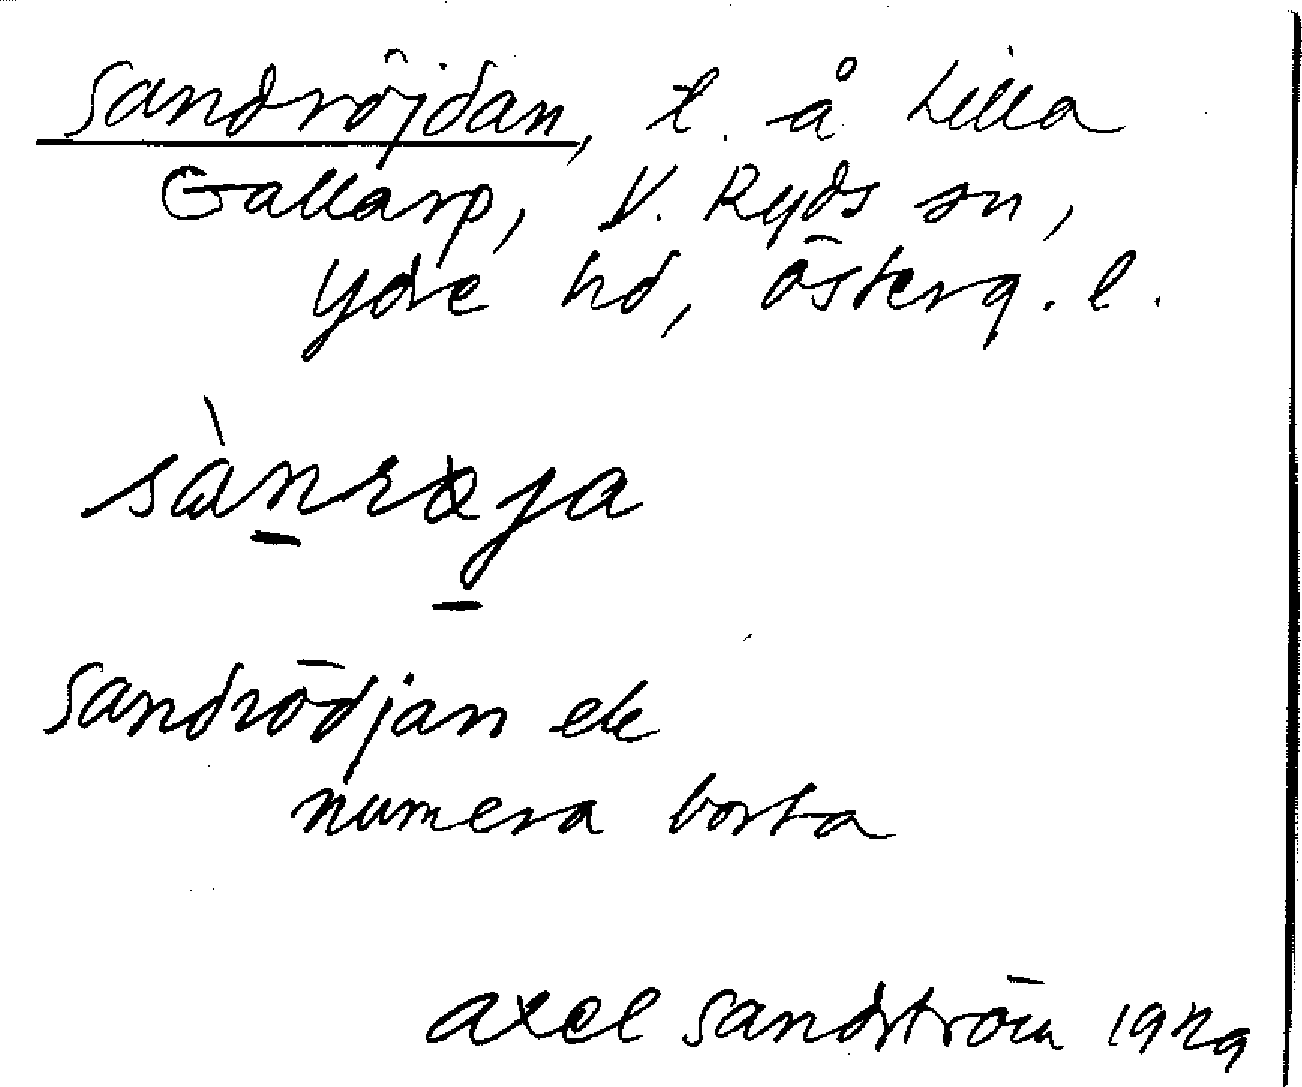 Sandröjdan, t. å Lilla
Gallarp, V. Ryds sn,
Ydre hd, Österg. l.
sànrøja
Sandrödjan ek
numera borta
Axel Sandström 1929